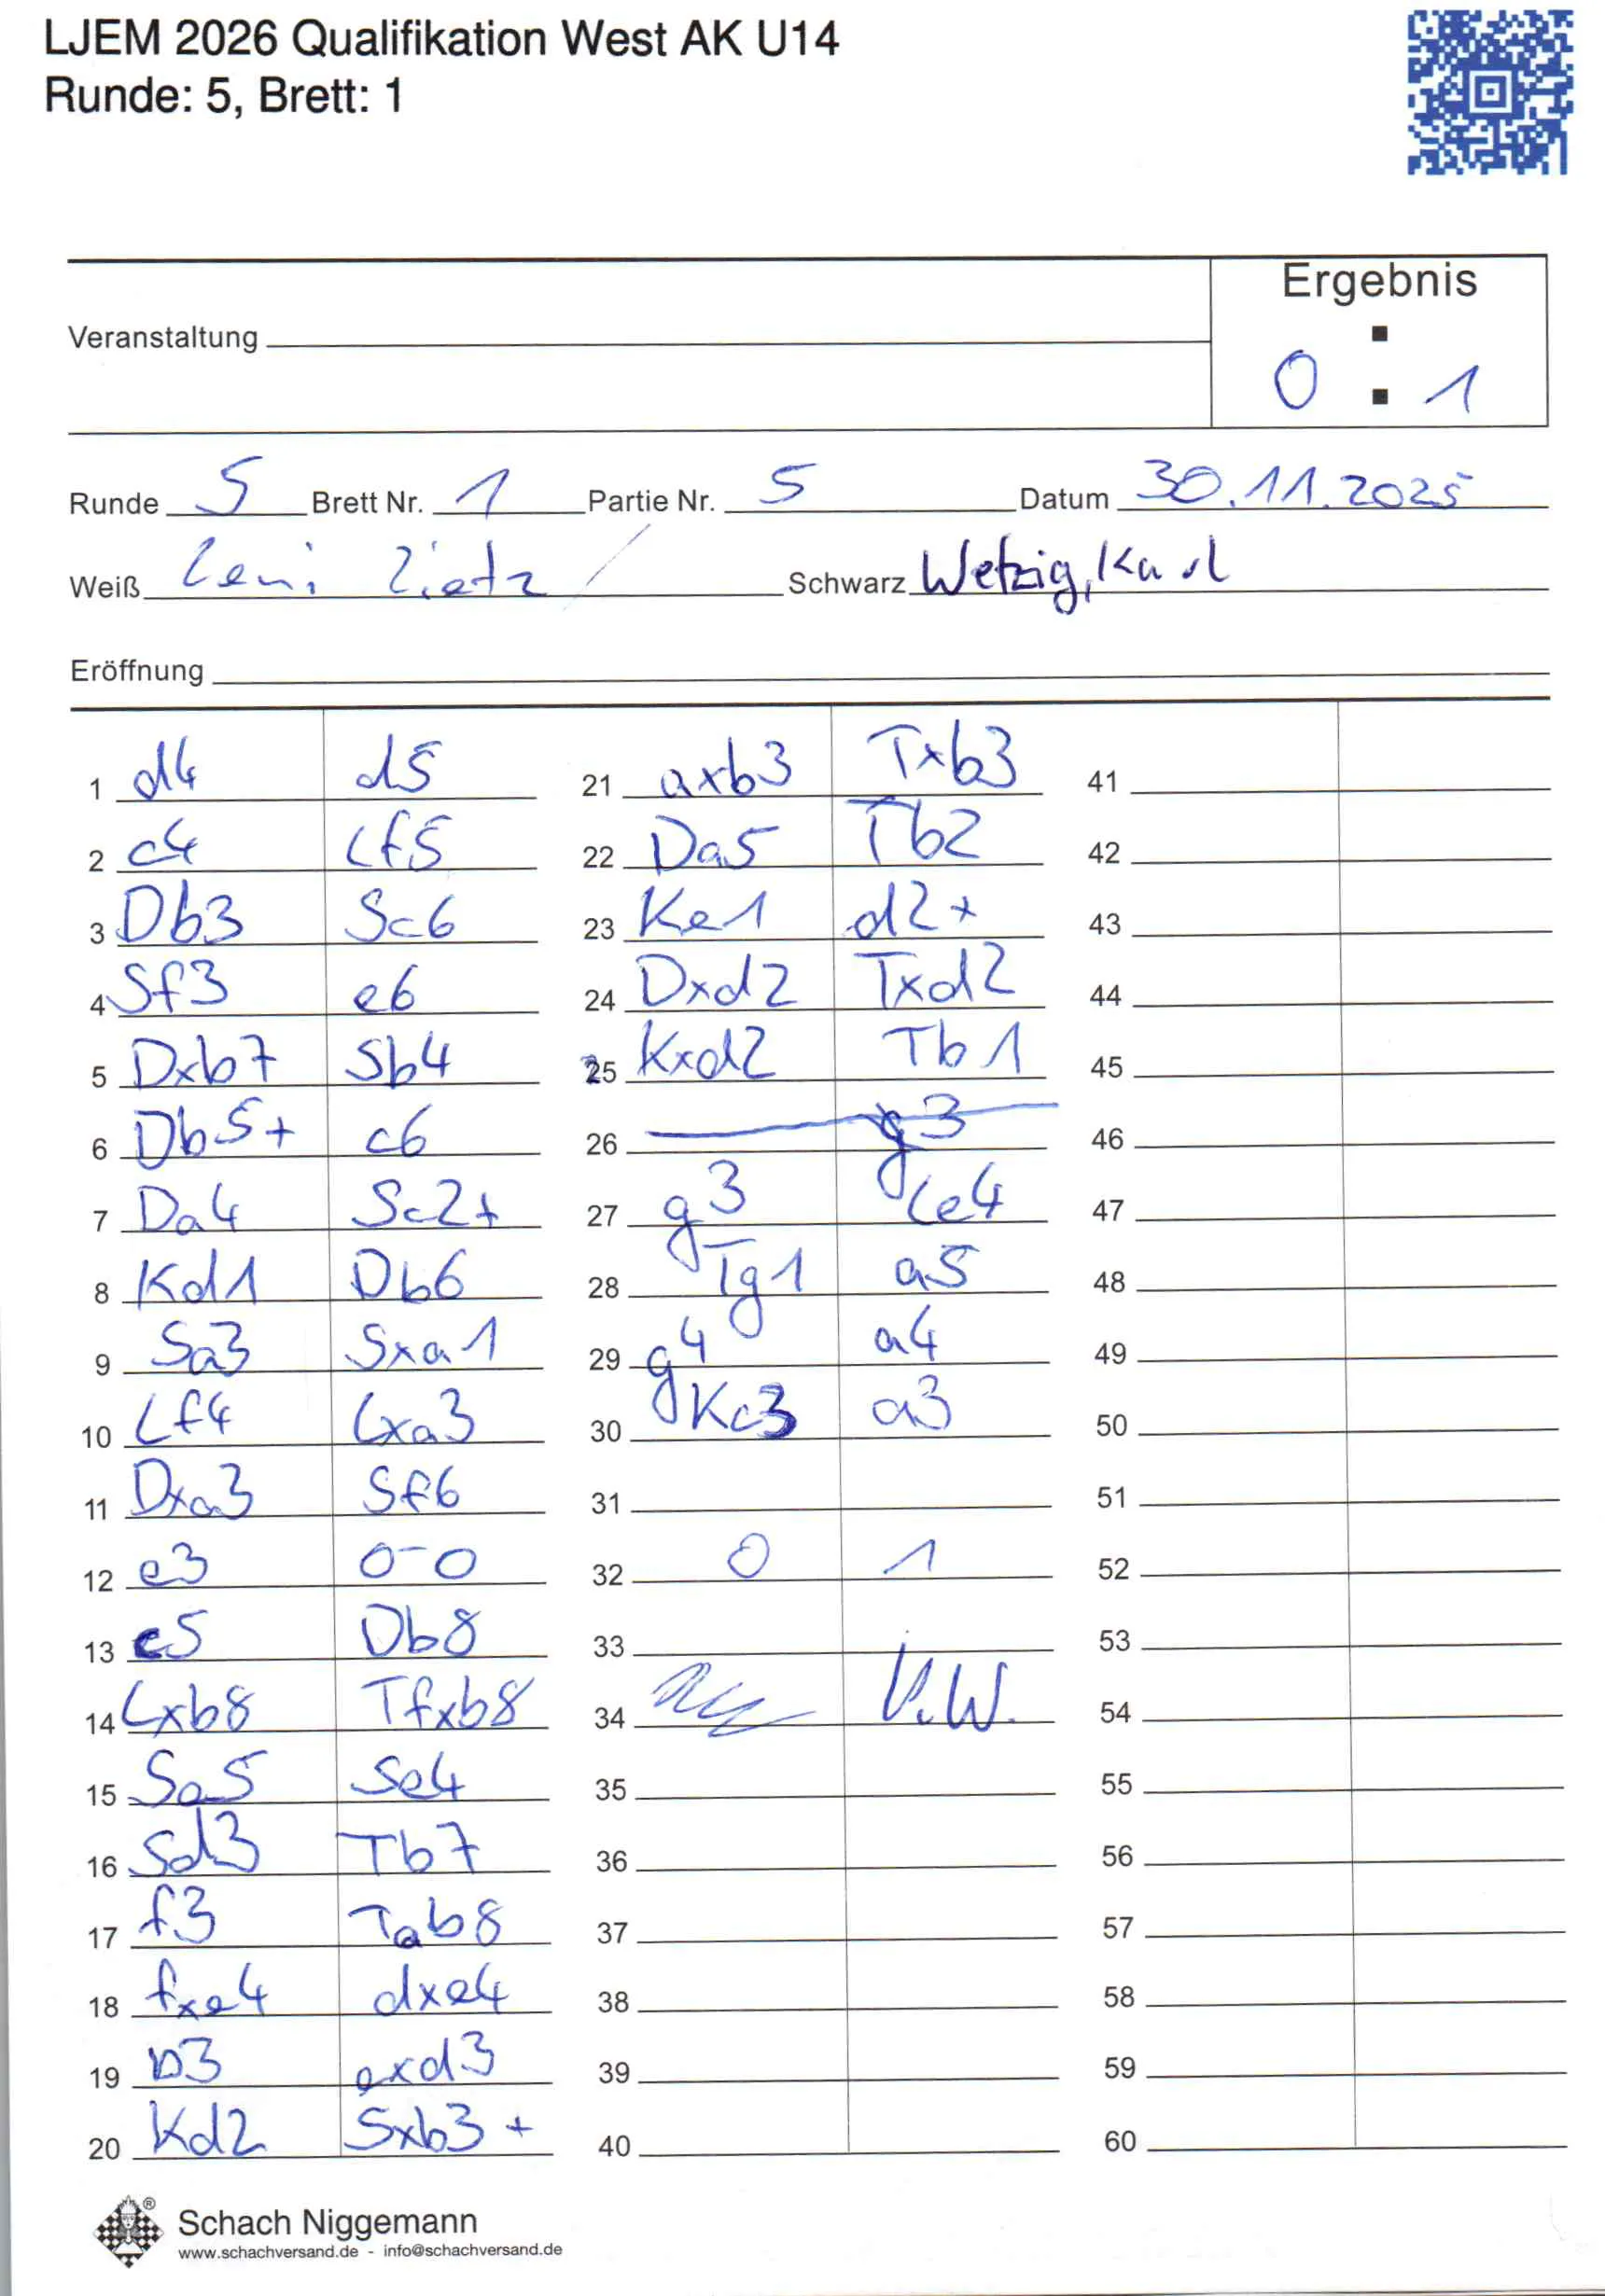 LJEM 2026 Qualifikation West AK U14
Runde: 5, Brett: 1
Ergebnis
Veranstaltung
0 : 1
Runde 5 Brett Nr. 1 Partie Nr. 5 Datum 30.11.2025
Weiß Leni Zietz Schwarz Wetzig, Karl
Eröffnung
1 d4 d5
2 c4 Lf5
3 Db3 Sc6
4 Sf3 e6
5 Dxb7 Sb4
6 Db5+ c6
7 Da4 Sc2+
8 Kd1 Db6
9 Sa3 Sxa1
10 Lf4 Lxa3
11 Dxa3 Sf6
12 e3 0-0
13 c5 Db8
14 Lxb8 Tfxb8
15 Se5 Se4
16 Sd3 Tb7
17 f3 Tab8
18 fxe4 dxe4
19 b3 exd3
20 Kd2 Sxb3+
21 axb3 Txb3
22 Da5 Tb2
23 Ke1 d2+
24 Dxd2 Txd2
25 Kxd2 Tb1
26 g3
27 g3 Le4
28 Tg1 a5
29 g4 a4
30 Kc3 a3
31
32 0 1
33
34 K.W.
35
36
37
38
39
40
41
42
43
44
45
46
47
48
49
50
51
52
53
54
55
56
57
58
59
60
®
Schach Niggemann
www.schachversand.de - info@schachversand.de